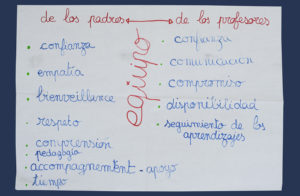 de los padres
de los profesores
equipo
. confianza
. empatia
. bienveillance
. respeto
. comprension
. pedagogia
. accompagnement - apoyo
. tiempo
. confianza
. comunicacion
. compromiso
. disponibilidad
. seguimiento de los
aprendizajes